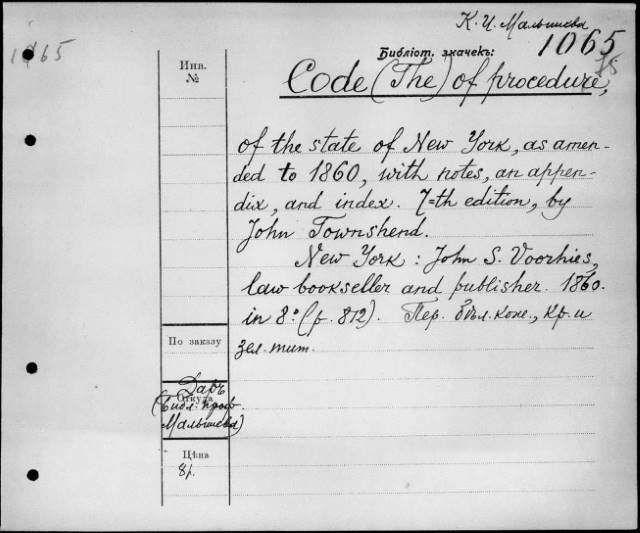 К. И. Малышева
1065
1065
15
Библіот. значекъ:
Инв.
№
Code (The) of procedure,
of the state of New York, as amen-
ded to 1860, with notes, an appen-
dix, and index. 7=th edition, by
John Townshend.
New York: John S. Voorhies,
law bookseller and publisher. 1860.
in 8° (p. 812). Пер. бѣл. кожс., кр. и
зел. тит.
По заказу
Откуда
Даръ
(Библ. проф.
Малышева)
Цѣна
8р.